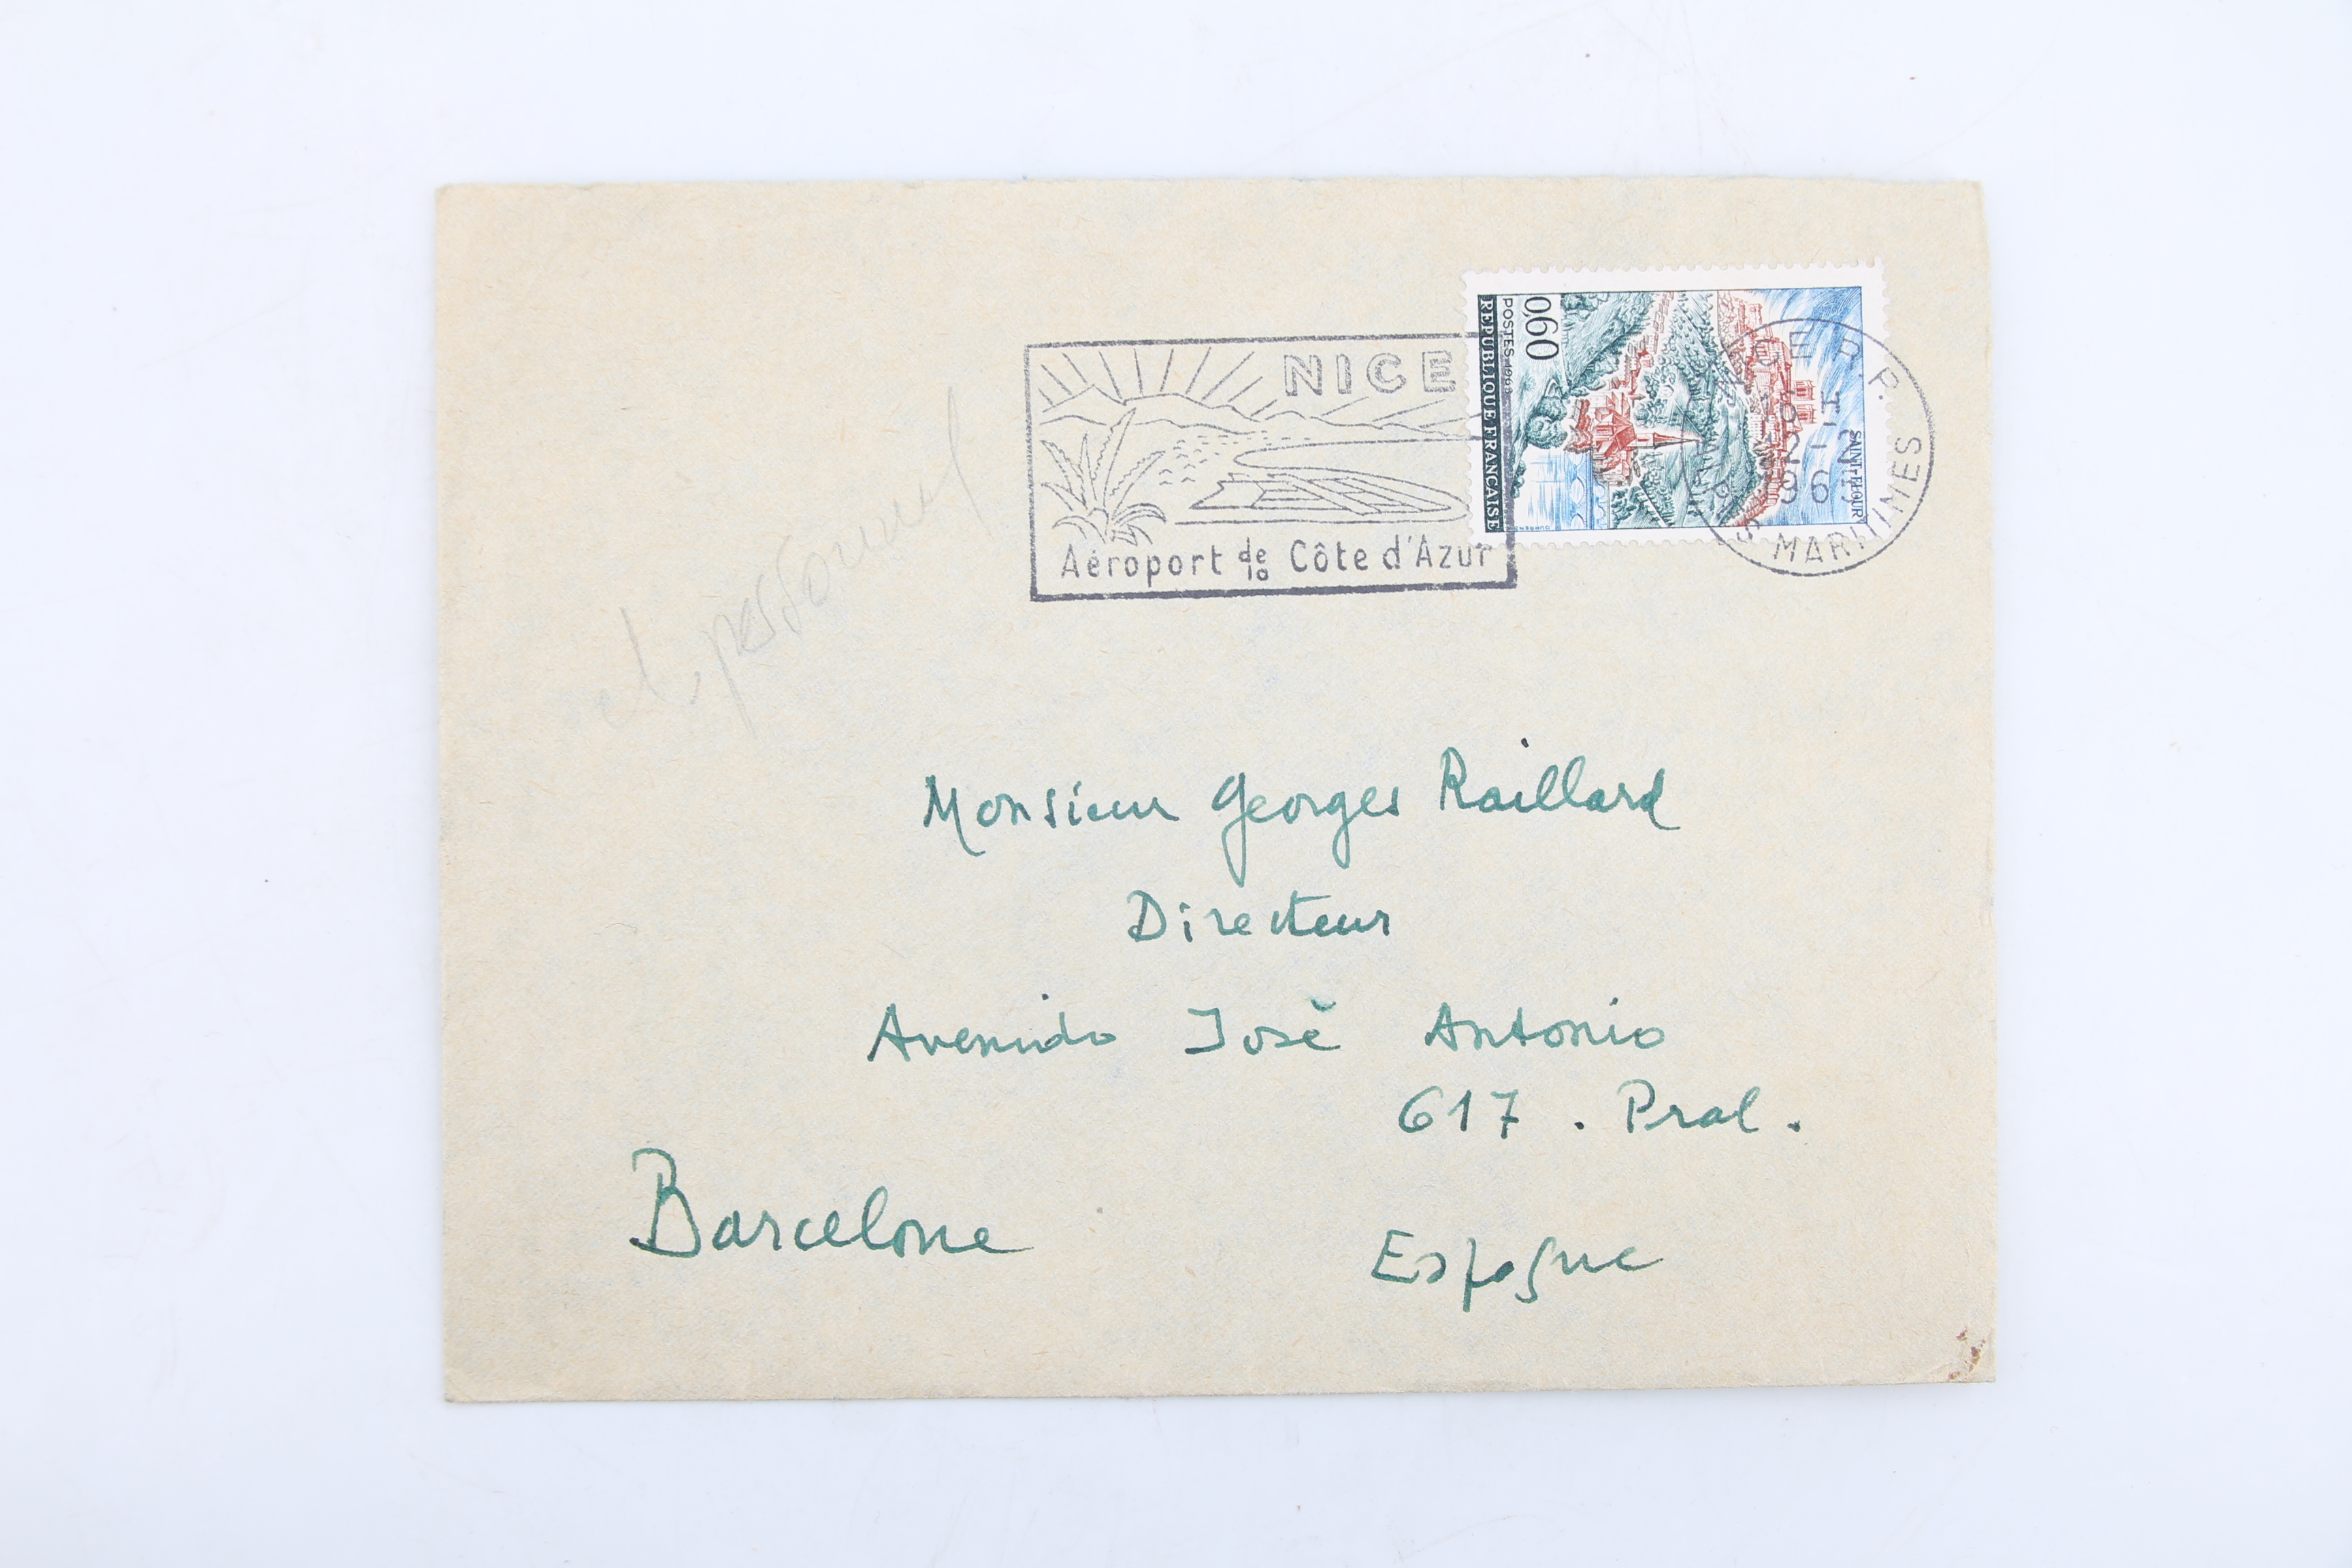 NICE
Aéroport de la Côte d'Azur
0,60
POSTES 1965
REPUBLIQUE FRANÇAISE
SAINT-FLOUR
NICE R.P.
MARITIMES
personnel
Monsieur Georges Raillard
Directeur
Avenida José Antonio
617 . Pral .
Barcelone
Espagne